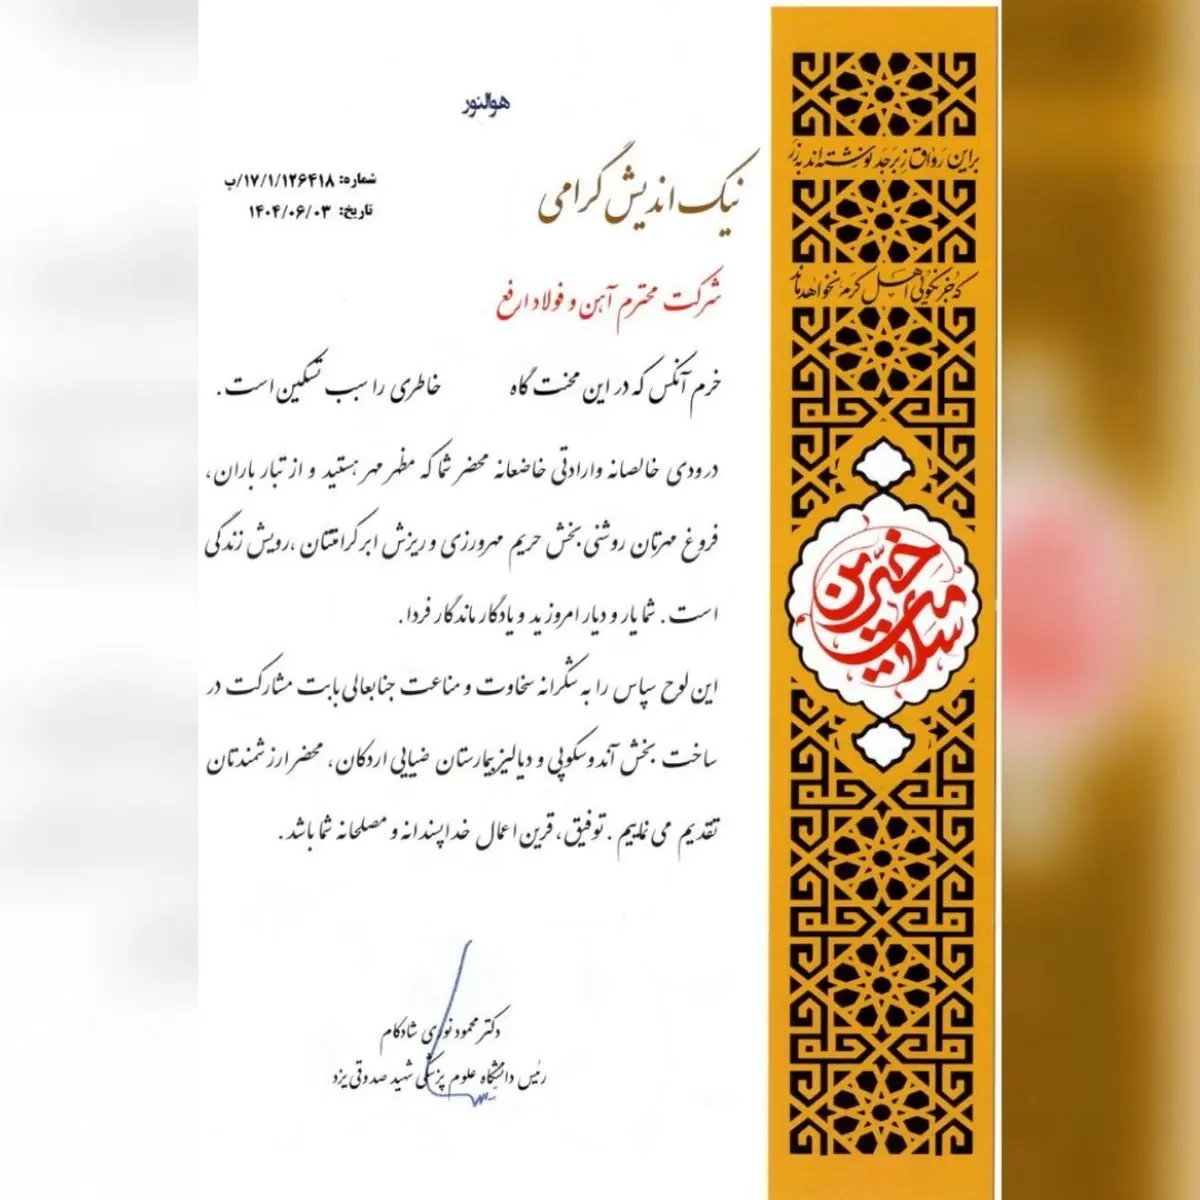 هوالنور
شماره: ۱۷/۱/۱۲۶۴۱۸/ب
تاریخ: ۱۴۰۴/۰۶/۰۳
نیک اندیش گرامی
شرکت محترم آهن و فولاد ارفع
خرم آنکس که در این محنت گاه خاطری را سبب تسکین است .
درودی خالصانه وارادتی خاضعانه محضر شما که مظهر مهر هستید و از تبار باران ،
فروغ مهرتان روشنی بخش حریم مهرورزی و ریزش ابر کرامتتان ، رویش زندگی
است . شما یار و دیار امروزید و یادگار ماندگار فردا .
این لوح سپاس را به شکرانه سخاوت و مناعت جنابعالی بابت مشارکت در
ساخت بخش آندوسکوپی و دیالیز بیمارستان ضیایی اردکان ، محضر ارزشمندتان
تقدیم می نماییم . توفیق ، قرین اعمال خداپسندانه و مصلحانه شما باشد .
دکتر محمود نوری شادکام
رئیس دانشگاه علوم پزشکی شهید صدوقی یزد
براین رواق زبرجد نوشته اند به زر
که جز نکویی اهل کرم نخواهد ماند
خیرین
سلامت